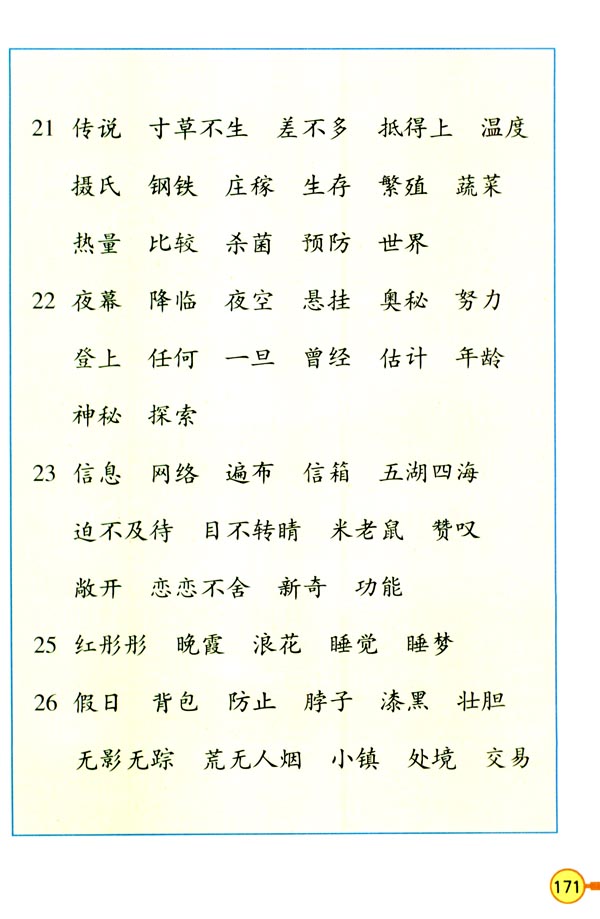 21 传说 寸草不生 差不多 抵得上 温度
摄氏 钢铁 庄稼 生存 繁殖 蔬菜
热量 比较 杀菌 预防 世界
22 夜幕 降临 夜空 悬挂 奥秘 努力
登上 任何 一旦 曾经 估计 年龄
神秘 探索
23 信息 网络 遍布 信箱 五湖四海
迫不及待 目不转睛 米老鼠 赞叹
敞开 恋恋不舍 新奇 功能
25 红彤彤 晚霞 浪花 睡觉 睡梦
26 假日 背包 防止 脖子 漆黑 壮胆
无影无踪 荒无人烟 小镇 处境 交易
171